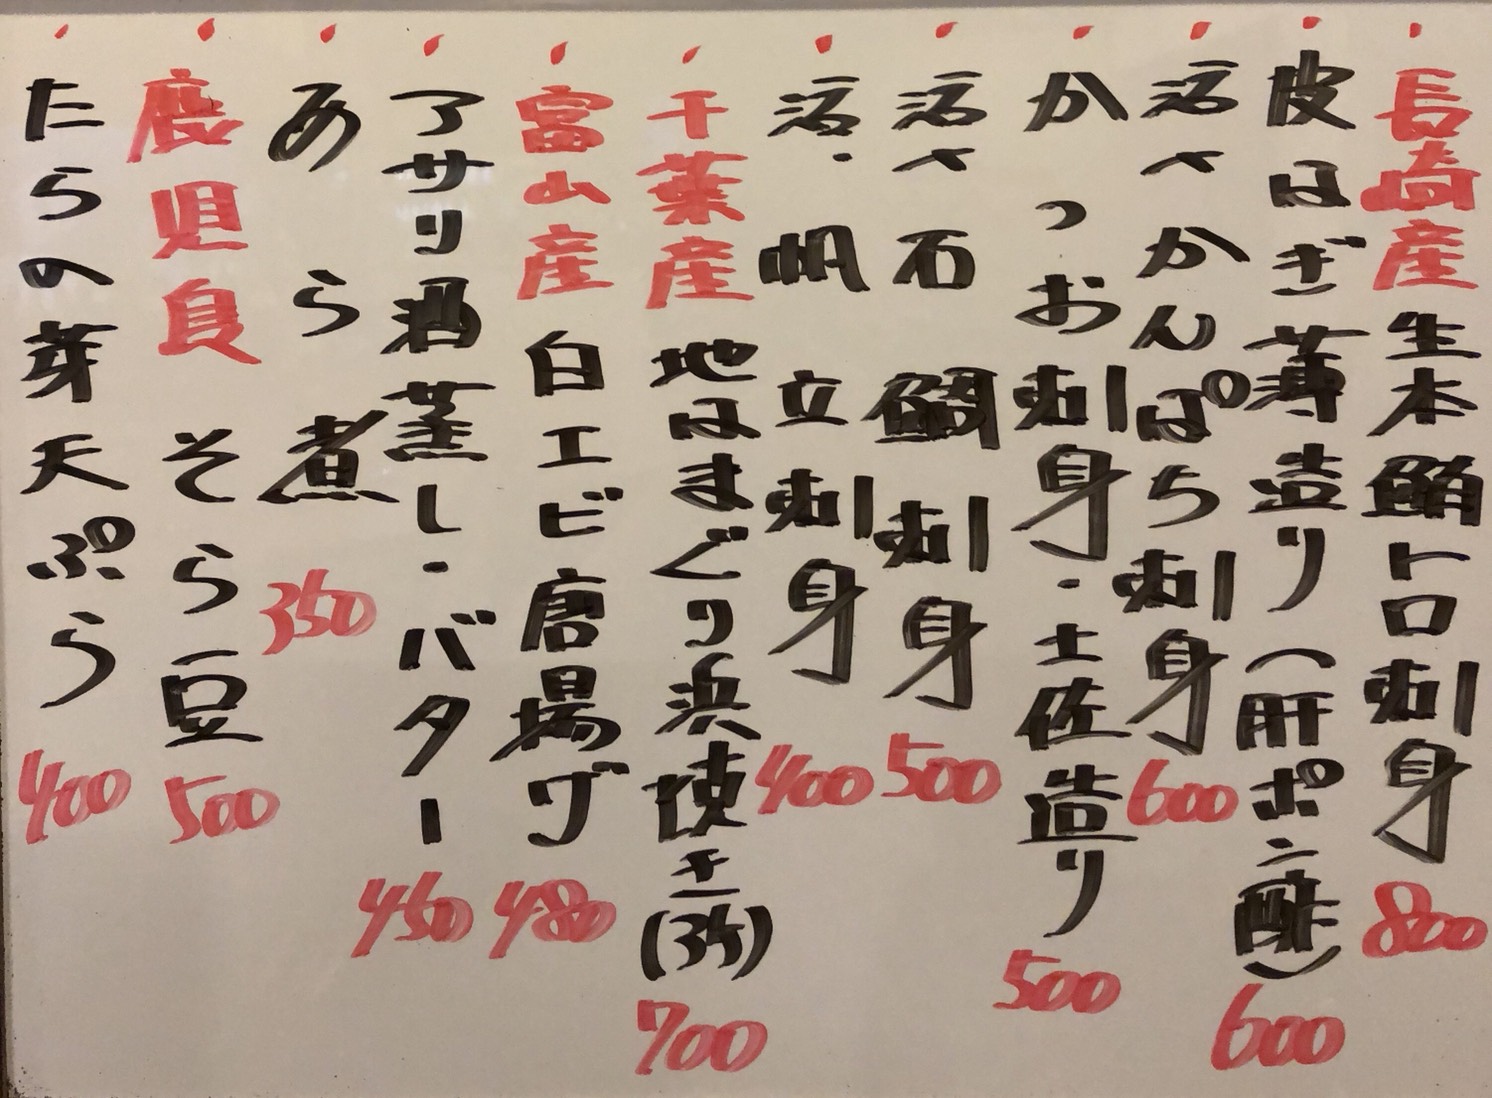 長崎産生本鮪トロ刺身800
皮はぎ薄造り(肝ポン酢)600
活〆かんぱち刺身600
かつお刺身・土佐造り500
活〆石鯛刺身500
活・帆立刺身400
千葉産地はまぐり浜焼き(3ケ)700
富山産白エビ唐揚げ480
アサリ酒蒸し・バター450
あら煮350
鹿児島そら豆500
たらの芽天ぷら400